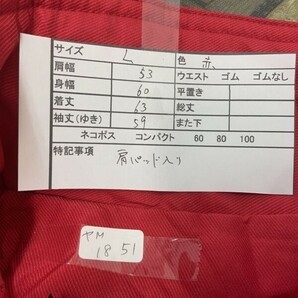 サイズ L 色 赤
肩幅 53 ウエスト ゴム ゴムなし
身幅 60 平置き
着丈 63 総丈
袖丈(ゆき) 59 また下
ネコポス コンパクト 60 80 100
特記事項
肩パッド入り
ヤM
18 51